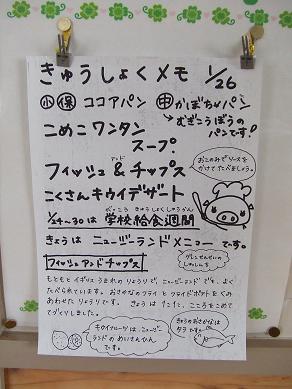 きゅうしょくメモ 1/26
小 保 ココアパン 中 かぼちゃパン
→むぎこうぼうの
パンです！
こめこワンタン
スープ
フィッシュ&チップス
アンド
おこのみでソースを
かけてたべましょう。
こくさんキウイデザート
がっこう きゅうしょく しゅうかん
1/24~30は 学校給食週間
きょうは ニュージーランドメニュー です。
フィッシュアンドチップス
もともとイギリスうまれのりょうりで、ニュージーランドでも、よく
たべられています。おさかなのフライとフライドポテトをくみ
あわせたりょうりです。きょうは 1こ1こ、こころをこめて
てづくりしました。
キウイフルーツは、ニュージー
ランドの めいさんひん
です。
きょうのおさかなは
タラです。